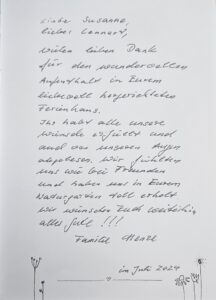 Liebe Susanne,
lieber Lennart,
vielen lieben Dank
für den wundervollen
Aufenthalt in Eurem
liebevoll hergerichteten
Ferienhaus.
Ihr habt alle unsere
Wünsche erfüllt und
und von unseren Augen
abgelesen. Wir fühlten
uns wie bei Freunden
und haben uns in Eurem
Naturgarten toll erholt
wir wünschen Euch weiterhin
alles Gute !!!
Familie
im Juli 2024